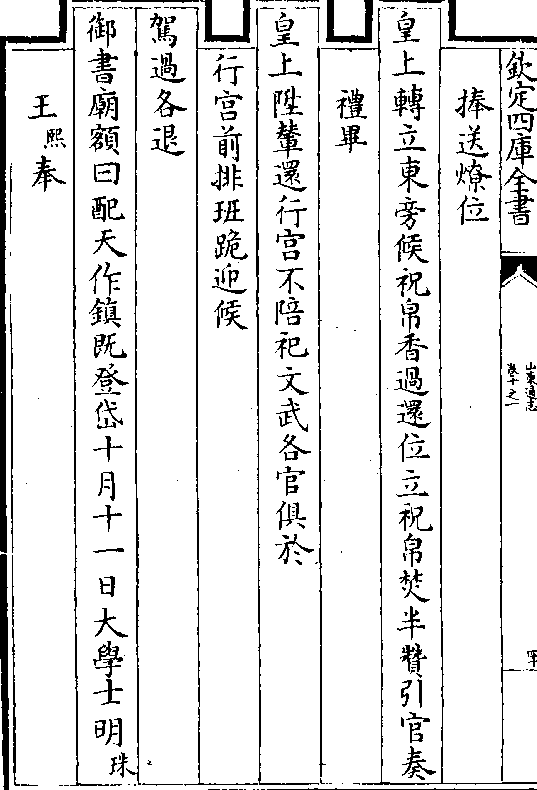 欽定四庫全書
山東通志
卷十之一
捧送燎位
皇上轉立東旁候祝帛香過還位立祝帛焚半贊引官奏
禮畢
皇上陞輦還行宮不陪祀文武各官俱於
行宮前排班跪迎候
駕過各退
御書廟額曰配天作鎮既登岱十月十一日大學士明珠
王熙奉